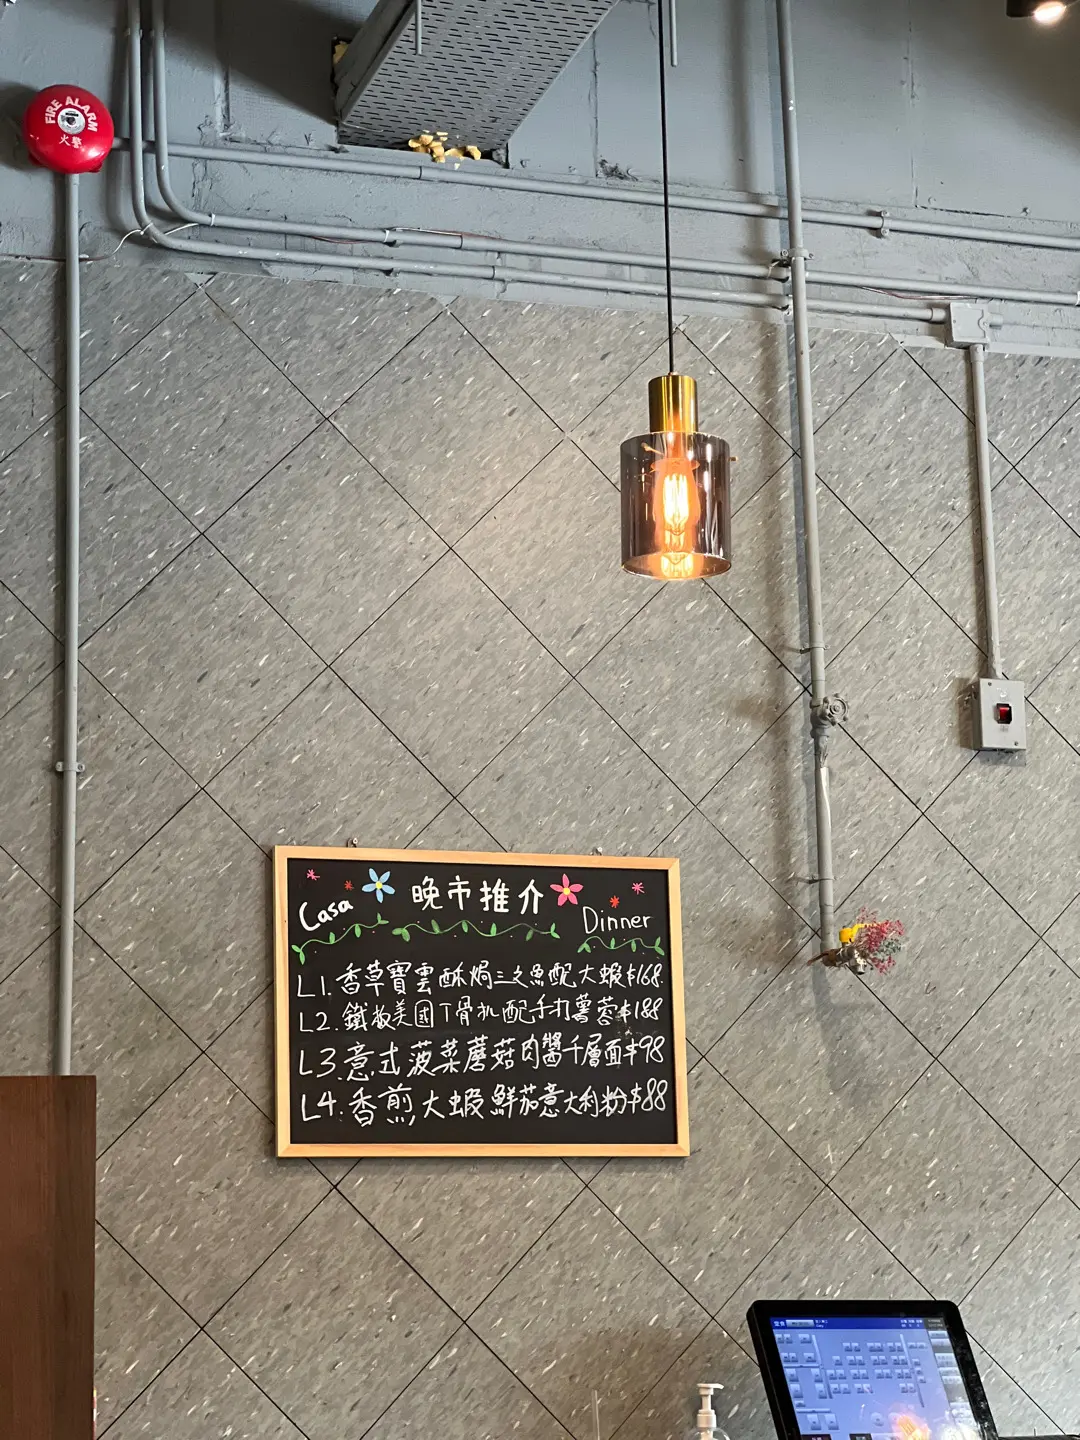 FIRE ALARM
火警
晚市推介
Casa
Dinner
L1. 香草寶雲酥焗三文魚配大蝦$168.
L2. 鐵板美國T骨扒配手打薯蓉$188
L3. 意式菠菜蘑菇肉醬千層面$98
L4. 香煎大蝦鮮茄意大利粉$88